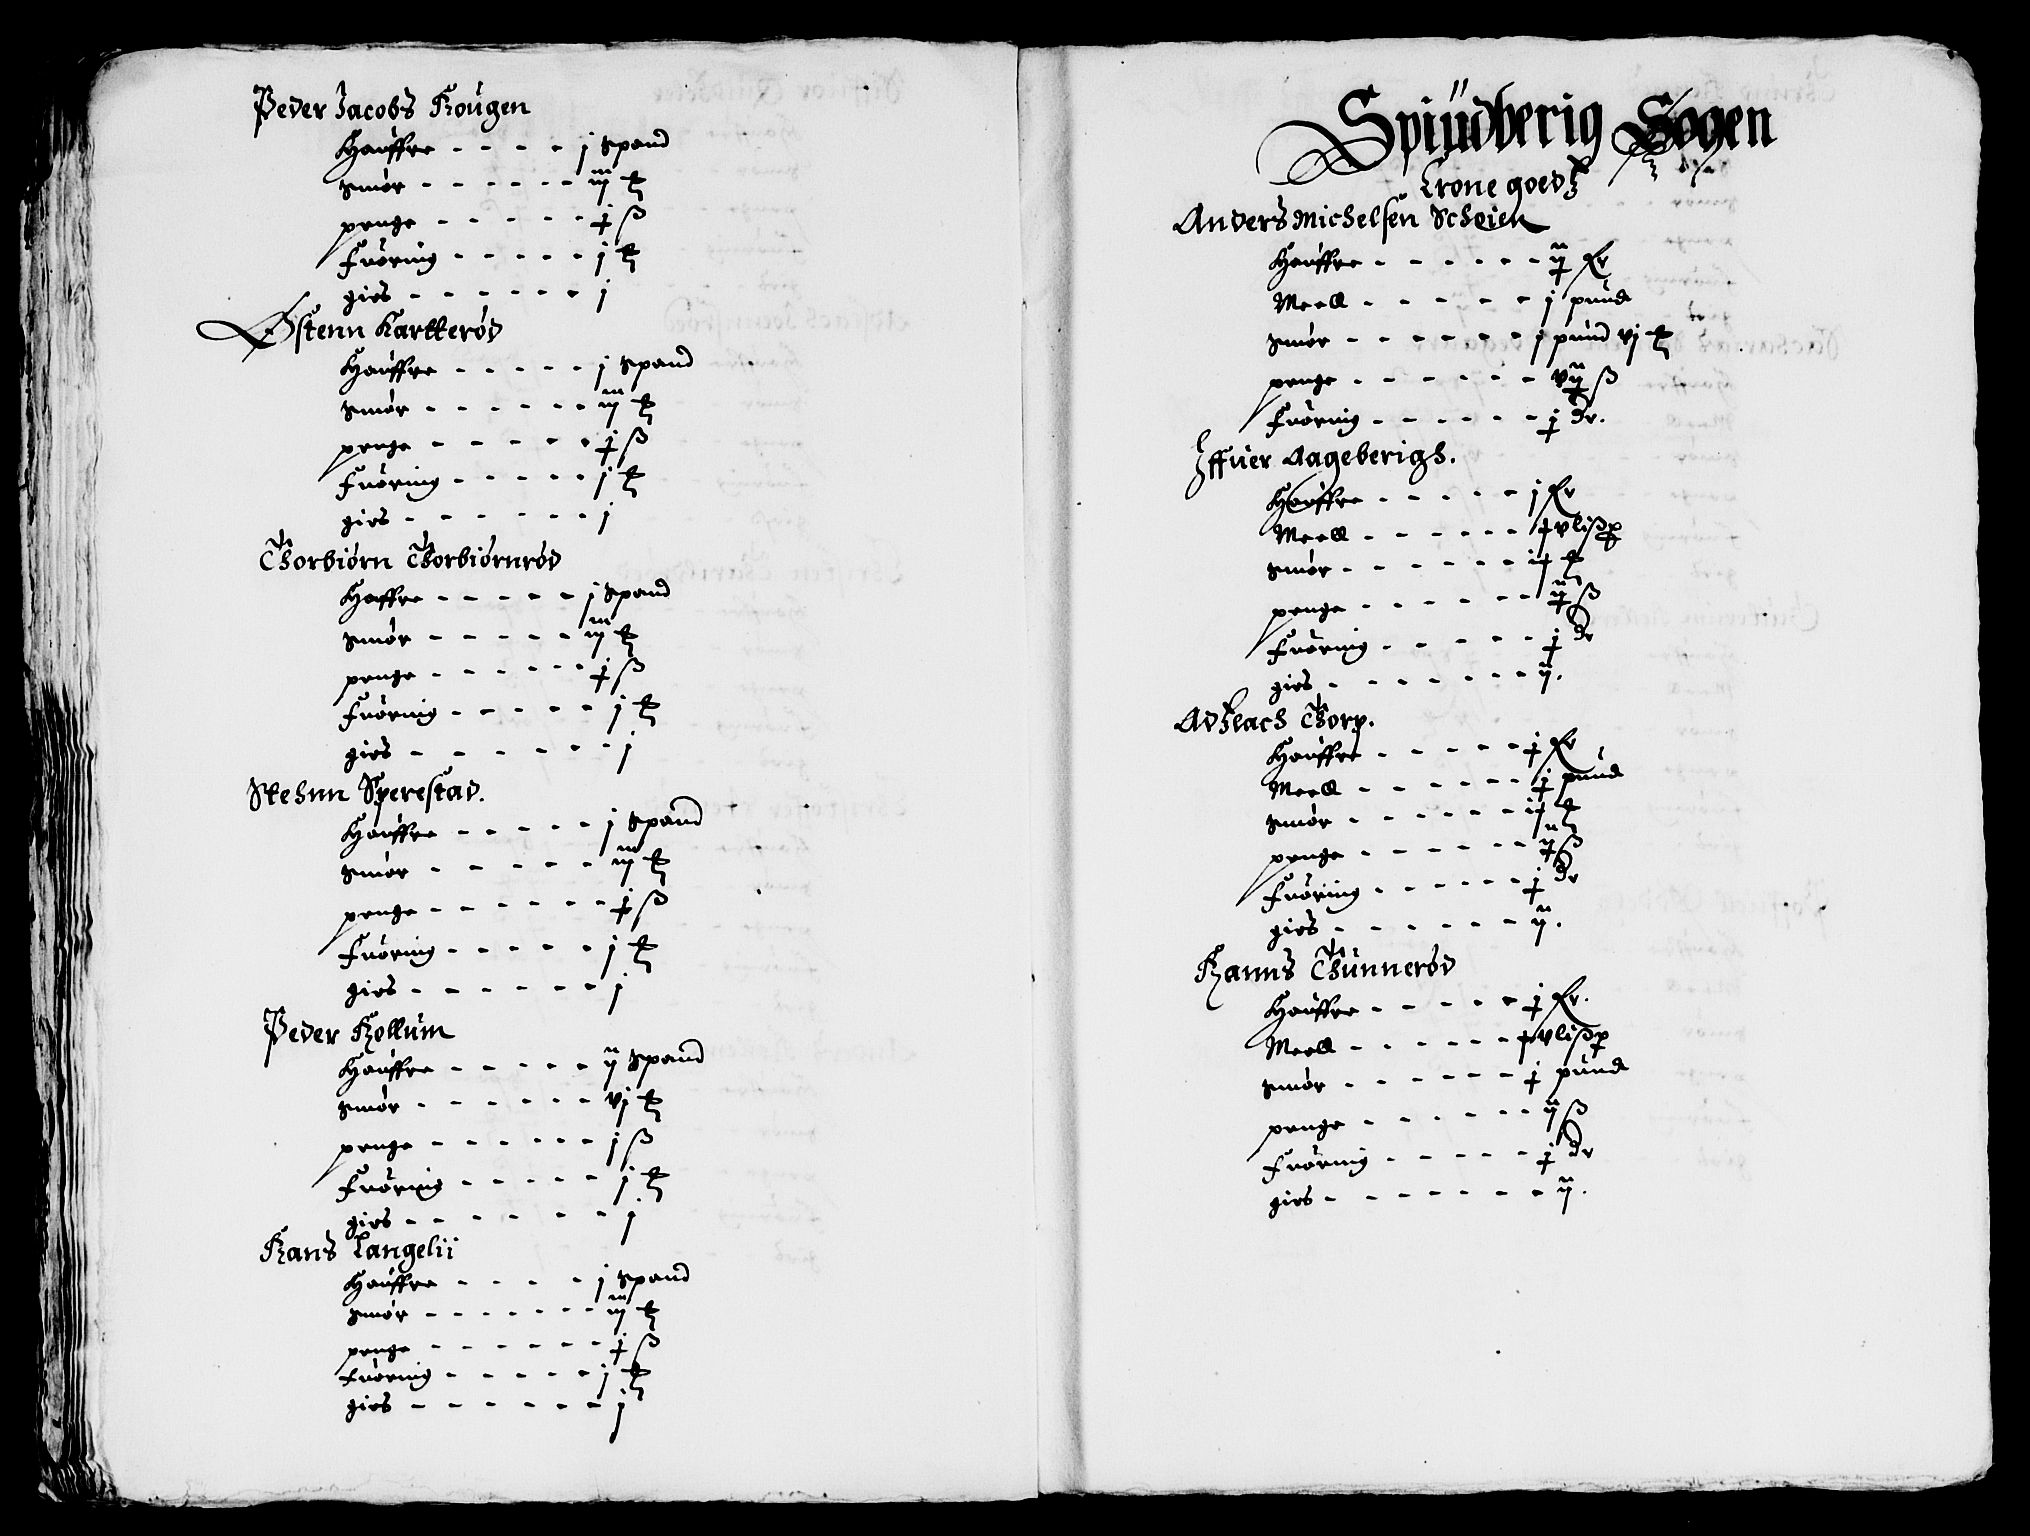 Peder Jacobs Hougen
Hauffre - - - - j Spand
Smør - - - - - - iij
penge - - - - - j ß
Fuøring - - - - - j
gies - - - - - - j
Østenn Kartterød
Hauffre - - - - - j Spand
Smør - - - - - - iij
penge - - - - - j ß
Fuøring - - - - - j
gies - - - - - - j
Thorbiørn Thorbiørnrød
Haffre - - - - - j Spand
Smør - - - - - iij
penge - - - - - - j ß
Fuøring - - - - - j
gies - - - - - - j
Stehnn Sperestad.
Hauffre - - - - - j Spand
Smør - - - - - iij
penge - - - - - - j ß
Fuøring - - - - - j
gies - - - - - - j
Peder Hollum
Hauffre - - - - - ij Spand
Smør - - - - - - vj
penge - - - - - - j ß
Fuøring - - - - - j
gies - - - - - - j
Hans Langelii
Hauffre - - - - j Spand
Smør - - - - - - - iij
penge - - - - - - j ß
Fuøring - - - - - j
gies - - - - - - j
Spiüdberig Sogen
Crone goedz
Anders Michelsen Scheien
Hauffre - - - - - - ij
Meell - - - - - j pund
Smør - - - - - - j pund vj
penge - - - - - - vij ß
Fuøring - - - - - - j dr.
Iffuer Aageberigs.
Hauffre - - - - - j
Meell - - - - - - vlißp
Smør - - - - - -
penge - - - - - - ij ß
Fuøring - - - - - j dr
gies - - - - - - - ij.
Adzlach Thorp.
Hauffre - - - - - j
Meell - - - - - - j pund
Smør - - - - - -
penge - - - - - - ij ß
Fuøring - - - - - - j dr
gies - - - - - - ij.
Hanns Thunnerød
Hauffre - - - - - j
Meell - - - - - - vlißp
Smør - - - - - - j pund
penge - - - - - - ij ß
Fuøring - - - - - j dr
gies - - - - - - - ij.